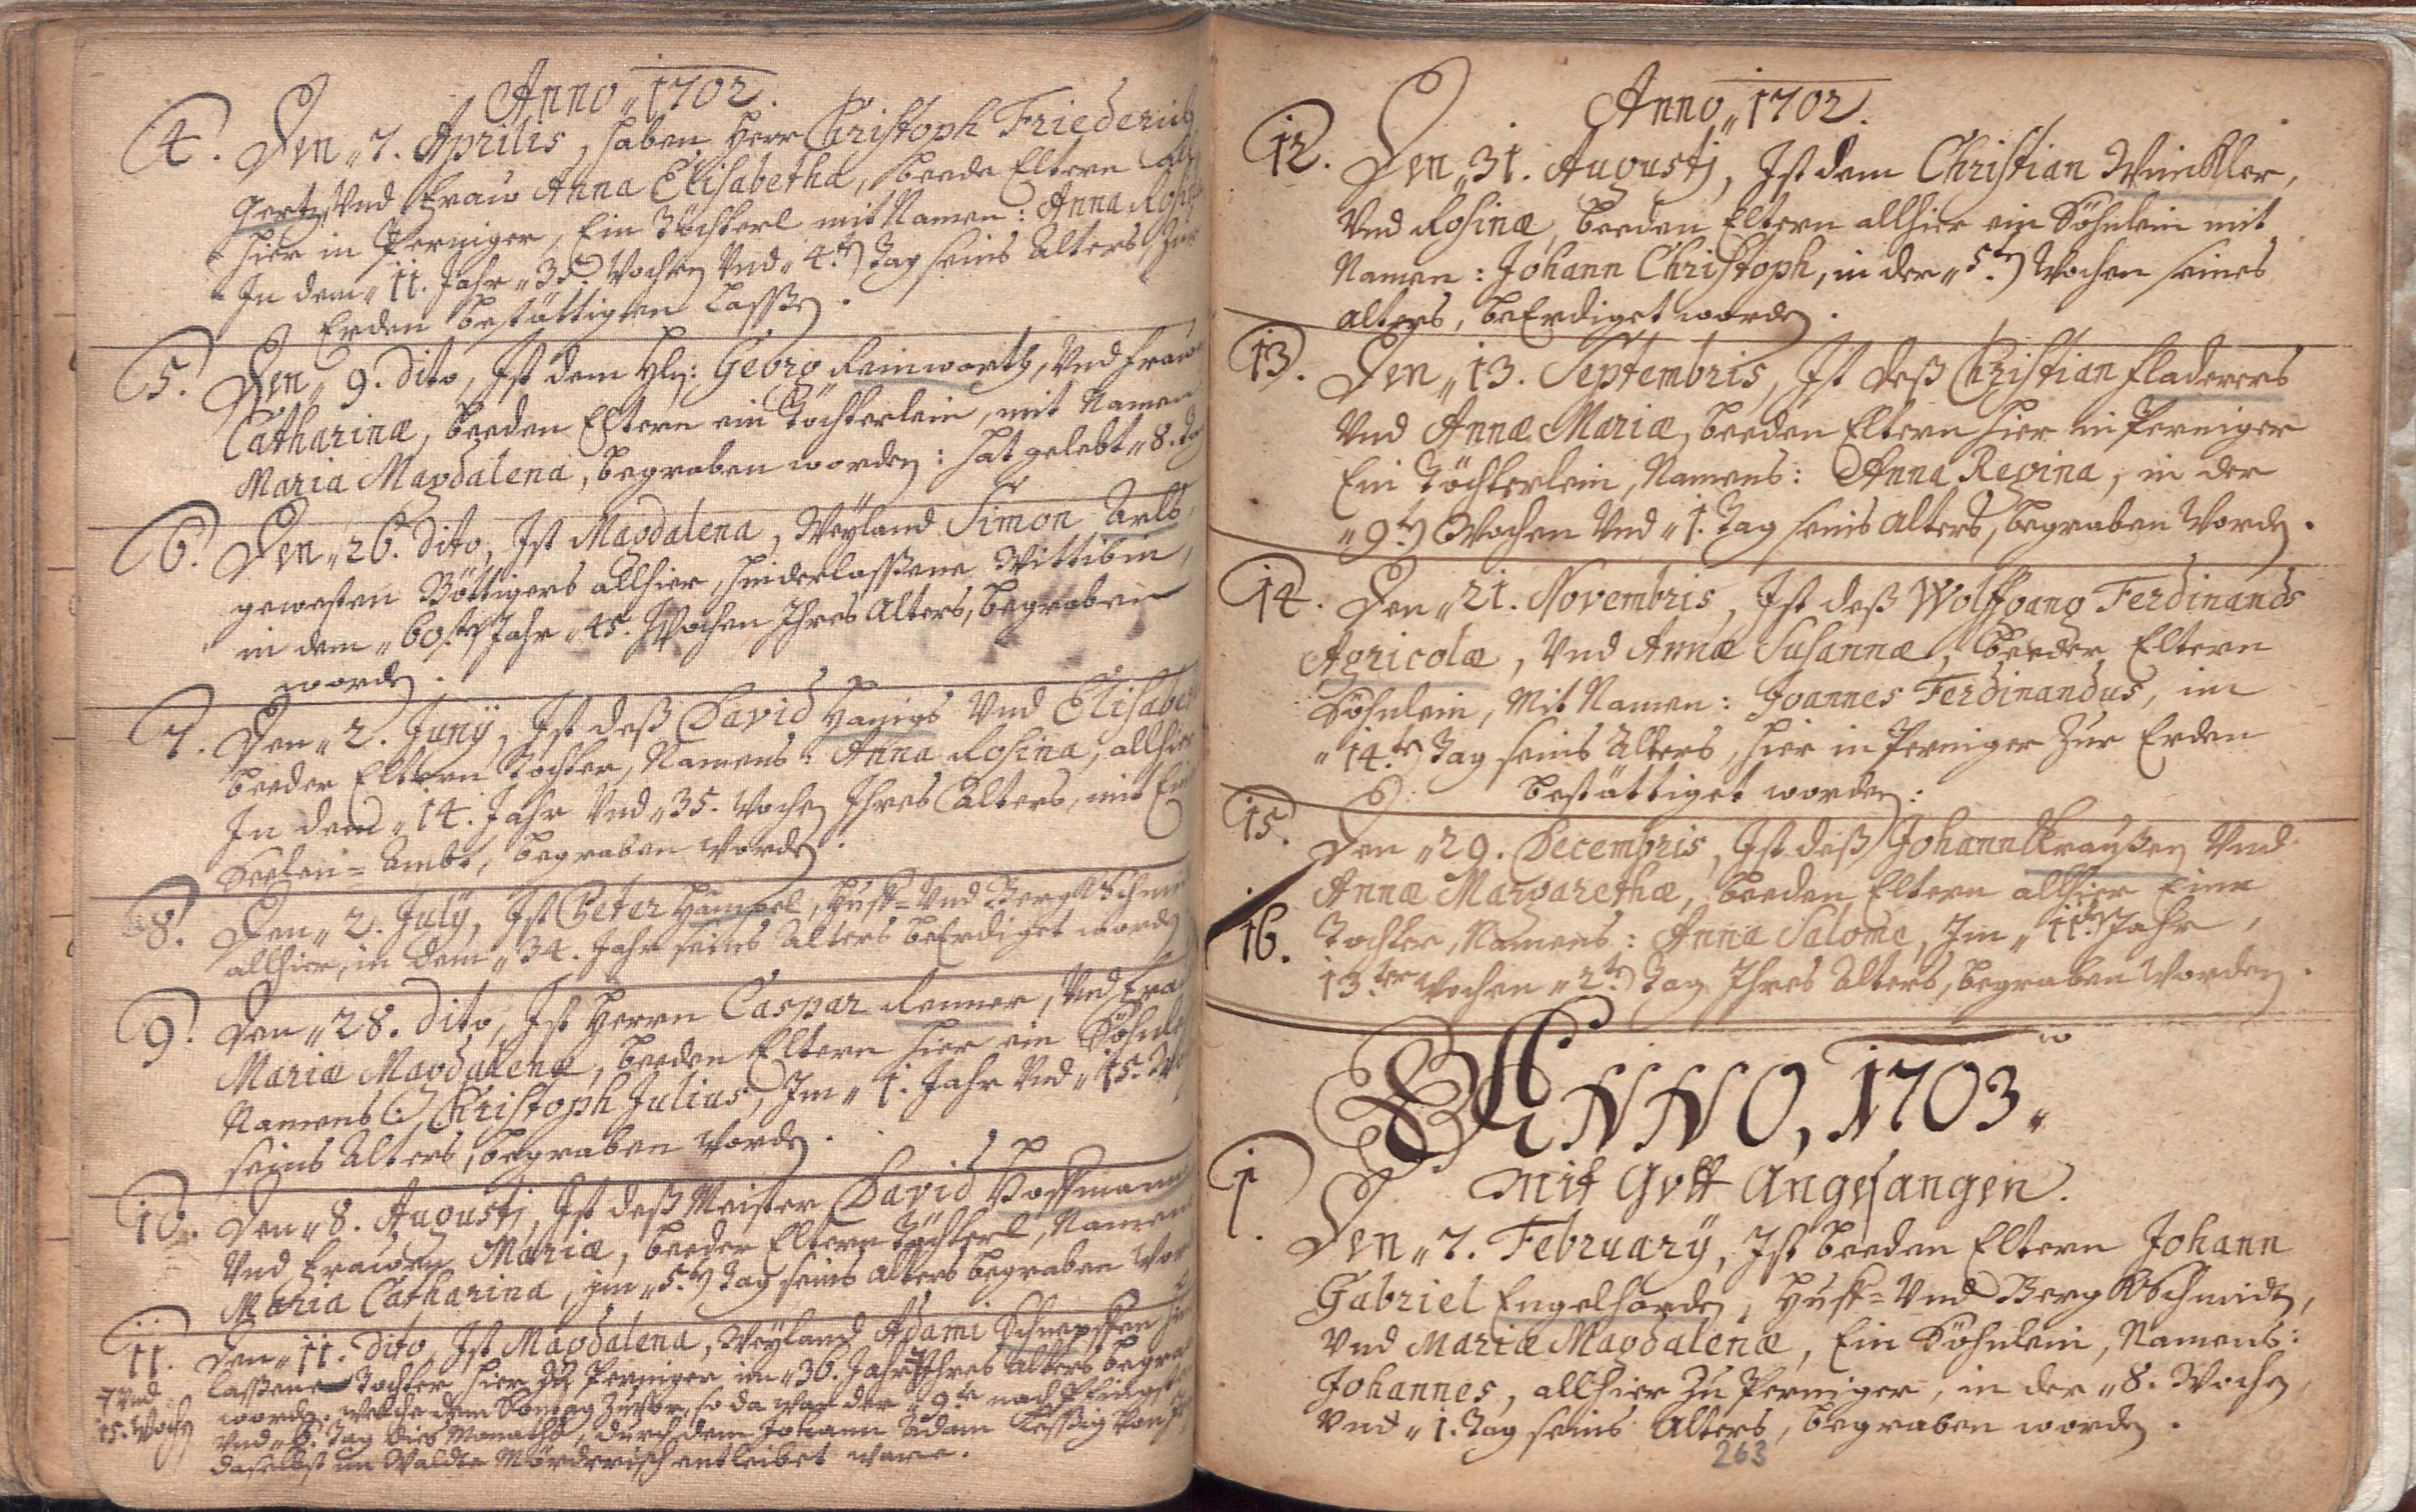 Anno „ 1702.
4. Den „ 7. Aprilis, haben Herr Christoph Friederich
Gertz Vnd Fraw Anna Elisabetha, beede Eltern all
hier in Perninger, Ein Töchterl mit Namen: Anna Rosi
In dem „ 11. Jahr „ 35. Wochen Vnd „ 4.ten Tag seins Alters, Zur
Erden bestättigen lassen.
5. Den „ 9. dito, Ist dem Hln: Georg Reinwarth, Vnd Fraw
Catharinæ, beeden Eltern ein Töchterlein, mit Namen
Maria Magdalena, begraben worden: hat gelebt „ 8. Tag
6. Den „ 26. dito, Ist Magdalena, Weyland Simon Arls,
gewesten Böttigers allhier, hinderlassene Wittibin,
in dem „ 60.sten Jahr „ 45. Wochen Ihres Alters, begraben
worden.
7. Den „ 2. Junÿ, Ist deß David Hanigs Vnd Elisabet
beeder Eltern Tochter, Namens: Anna Rosina, allhier
In dem „ 14. Jahr Vnd „ 35. Wochen Ihres Alters, mit Ein
Seelen-Ambt, begraben worden.
8. Den „ 2. Julÿ, Ist Peter Hampel, Huff- Vnd BergSchmi
allhier, in dem „ 34. Jahr seines Alters beErdiget worden
9. Den „ 28. dito, Ist Herrn Caspar Renner, Vnd Fra
Mariæ Magdalenæ, beeden Eltern hier ein Söhnle
Namens: Christoph Julius, Im „ 1. Jahr Vnd „ 15. Wo
seins Alters, begraben worden.
10. Den „ 8. Augustj, Ist deß Meister David Hoffmann
Vnd Frawen Mariæ, beeder Eltern Töchterl, Namens
Maria Catharina, im „ 5.ten Tag seins Alters begraben wor
11. Den „ 11. dito, Ist Magdalena, Weyland Adami Schnepffen hin
lassene Tochter hier zu Perninger im „ 36. Jahr Ihres Alters begra
7 Vnd
15. Wochen
worden, welche den Sontag zuvor, so da war der „ 9.te nach Pfingsten
Vnd „ 6. Tag dies Monaths, durch den Johann Adam
daselbst im Waldte Mörderisch entleibet ware.
Anno „ 1702.
12. Den „ 31. Augustj, Ist dem Christian Winckler,
Vnd Rosinæ, beeden Eltern allhier ein Söhnlein mit
Namen: Johann Christoph, in der „ 5.ten Wochen seines
alters, beErdiget worden.
13. Den „ 13. Septembris, Ist deß Christian Fladerers
Vnd Annæ Mariæ, beeden Eltern hier in Perninger
Ein Töchterlein, Namens: Anna Regina, in der
„ 9.ten Wochen Vnd „ 1. Tag seins Alters, begraben worden.
14. Den „ 21. Novembris, Ist deß Wolffgang Ferdinands
Agricolæ, Vnd Annæ Susannæ, beeder Eltern
Söhnlein, Mit Namen: Joannes Ferdinandus, im
„ 14.ten Tag seins Alters, hier in Perninger Zur Erden
bestättiget worden:
15. Den „ 29. Decembris, Ist deß Johann Kraußen Vnd
Annæ Margarethæ, beeden Eltern allhier Eine
16. Tochter, Namens: Anna Salome, Im „ 11.ten Jahr,
13.ter Wochen „ 2.ten Tag Ihres Alters, begraben worden.
ANNO, 1703.
Mit Gott Angefangen.
1. Den „ 7. Februarÿ, Ist beeden Eltern Johann
Gabriel Engelharden, Huff- Vnd BergSchmidt,
Vnd Mariæ Magdalenæ, Ein Söhnlein, Namens:
Johannes, allhier zu Perninger, in der „ 8. Wochen,
Vnd „ 1. Tag seins Alters, begraben worden.
263